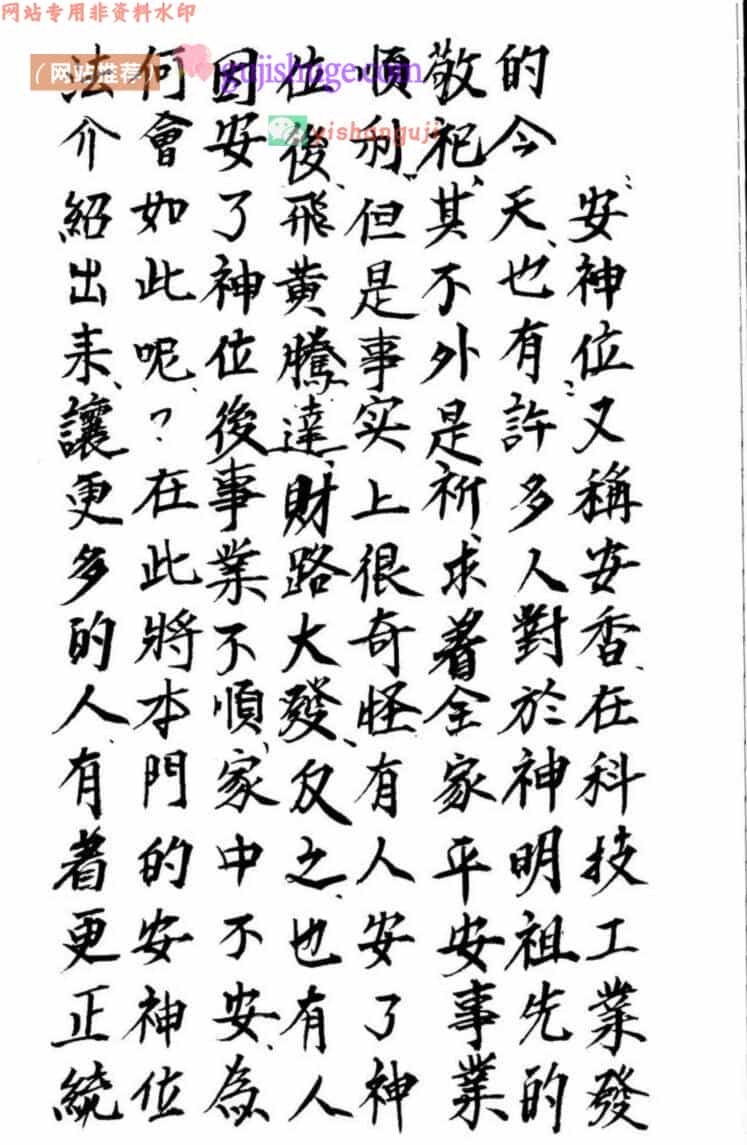 网站专用非资料水印
（网站推荐）
gujishuge.com
yishanguji
安神位又稱安香、在科技工業發
的今天、也有許多人對於神明祖先的
敬祀、其不外是祈求着全家平安事業
順利、但是事实上很奇怪有人安了神
位後、飛黃騰達、財路大發、反之、也有人
因安了神位後事業不順、家中不安、為
何會如此呢？在此將本門的安神位
法介紹出来、讓更多的人、有着更正統